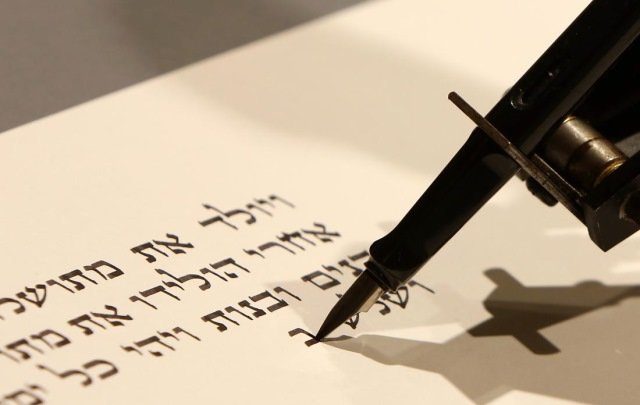 ויולד את מתושל
אחרי הולידו את מתו
בנים ובנות ויהי כל ימ
ושלש